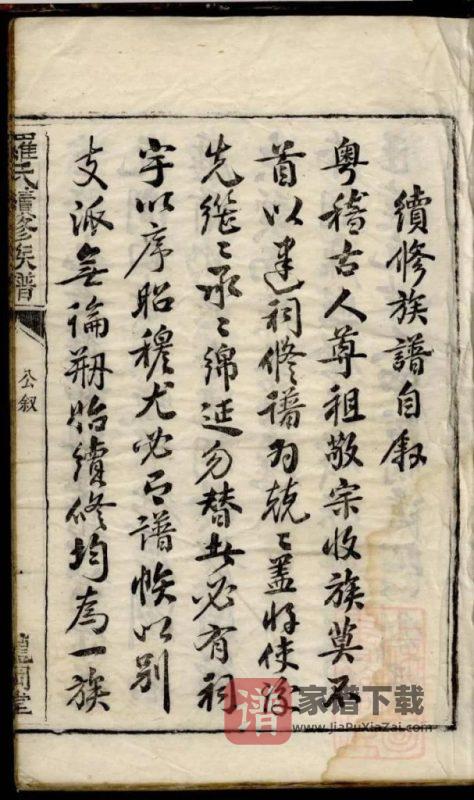 續修族譜自叙
粵稽古人尊祖敬宗收族莫不
首以建祠修譜為兢〻蓋將使後
先繼〻承〻綿延勿替者必有祠
宇以序昭穆尤必有譜帙以別
支派無論剏始續修均為一族
羅氏續修族譜
公叙
家譜下载
www.JiaPuXiaZai.com
譜